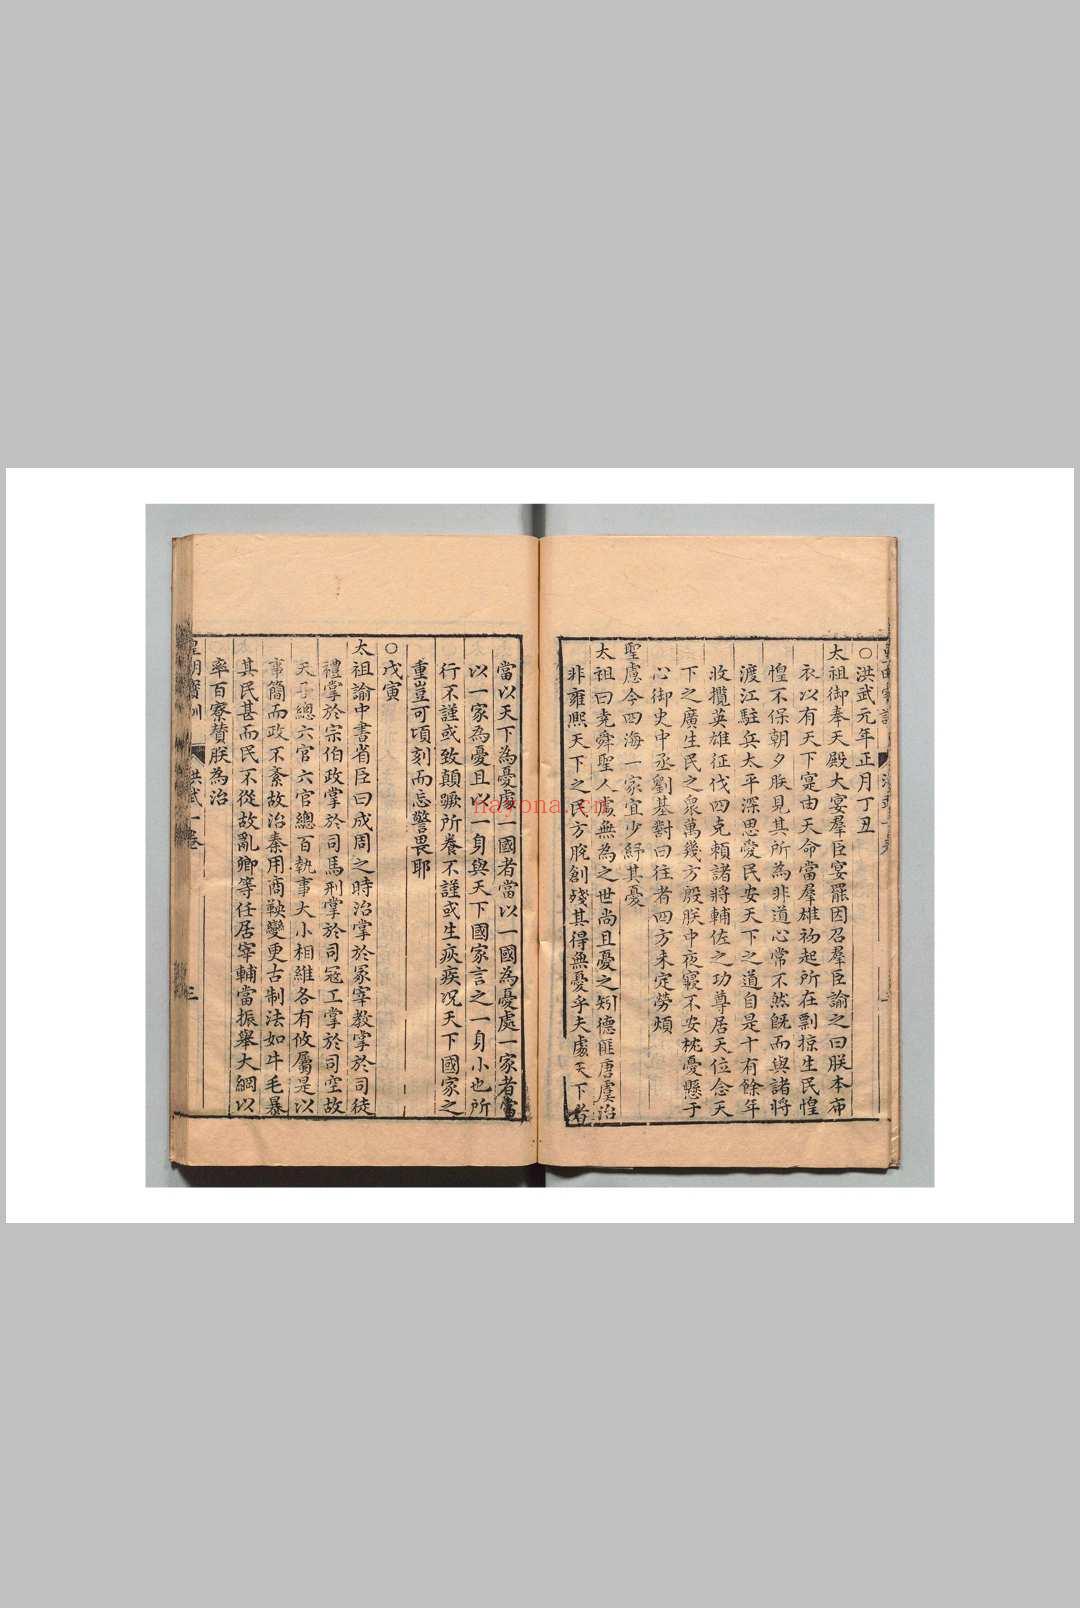 ○洪武元年正月丁丑
太祖御奉天殿大宴羣臣宴罷因召羣臣諭之曰朕本布
衣以有天下寔由天命當羣雄初起所在剽掠生民惶
惶不保朝夕朕見其所為非道心常不然既而與諸將
渡江駐兵太平深思愛民安天下之道自是十有餘年
收攬英雄征伐四克賴諸將輔佐之功尊居天位念天
下之廣生民之衆萬幾方殷朕中夜寢不安枕憂懸于
心御史中丞劉基對曰往者四方未定勞煩
聖慮今四海一家宜少紓其憂
太祖曰堯舜聖人處無為之世尚且憂之矧德匪唐虞治
非雍熙天下之民方脫創殘其得無憂乎夫處天下者
當以天下為憂處一國者當以一國為憂處一家者當
以一家為憂且以一身與天下國家言之一身小也所
行不謹或致顛蹶所養不謹或生疢疾况天下國家之
重豈可頃刻而忘警畏耶
○戊寅
太祖諭中書省臣曰成周之時治掌於冢宰教掌於司徒
禮掌於宗伯政掌於司馬刑掌於司冦工掌於司空故
天子總六官六官總百執事大小相維各有攸屬是以
事簡而政不紊故治秦用商鞅變更古制法如牛毛暴
其民甚而民不從故亂卿等任居宰輔當振舉大綱以
率百寮賛朕為治
皇朝寶訓 洪武一卷 三
nayona.cn